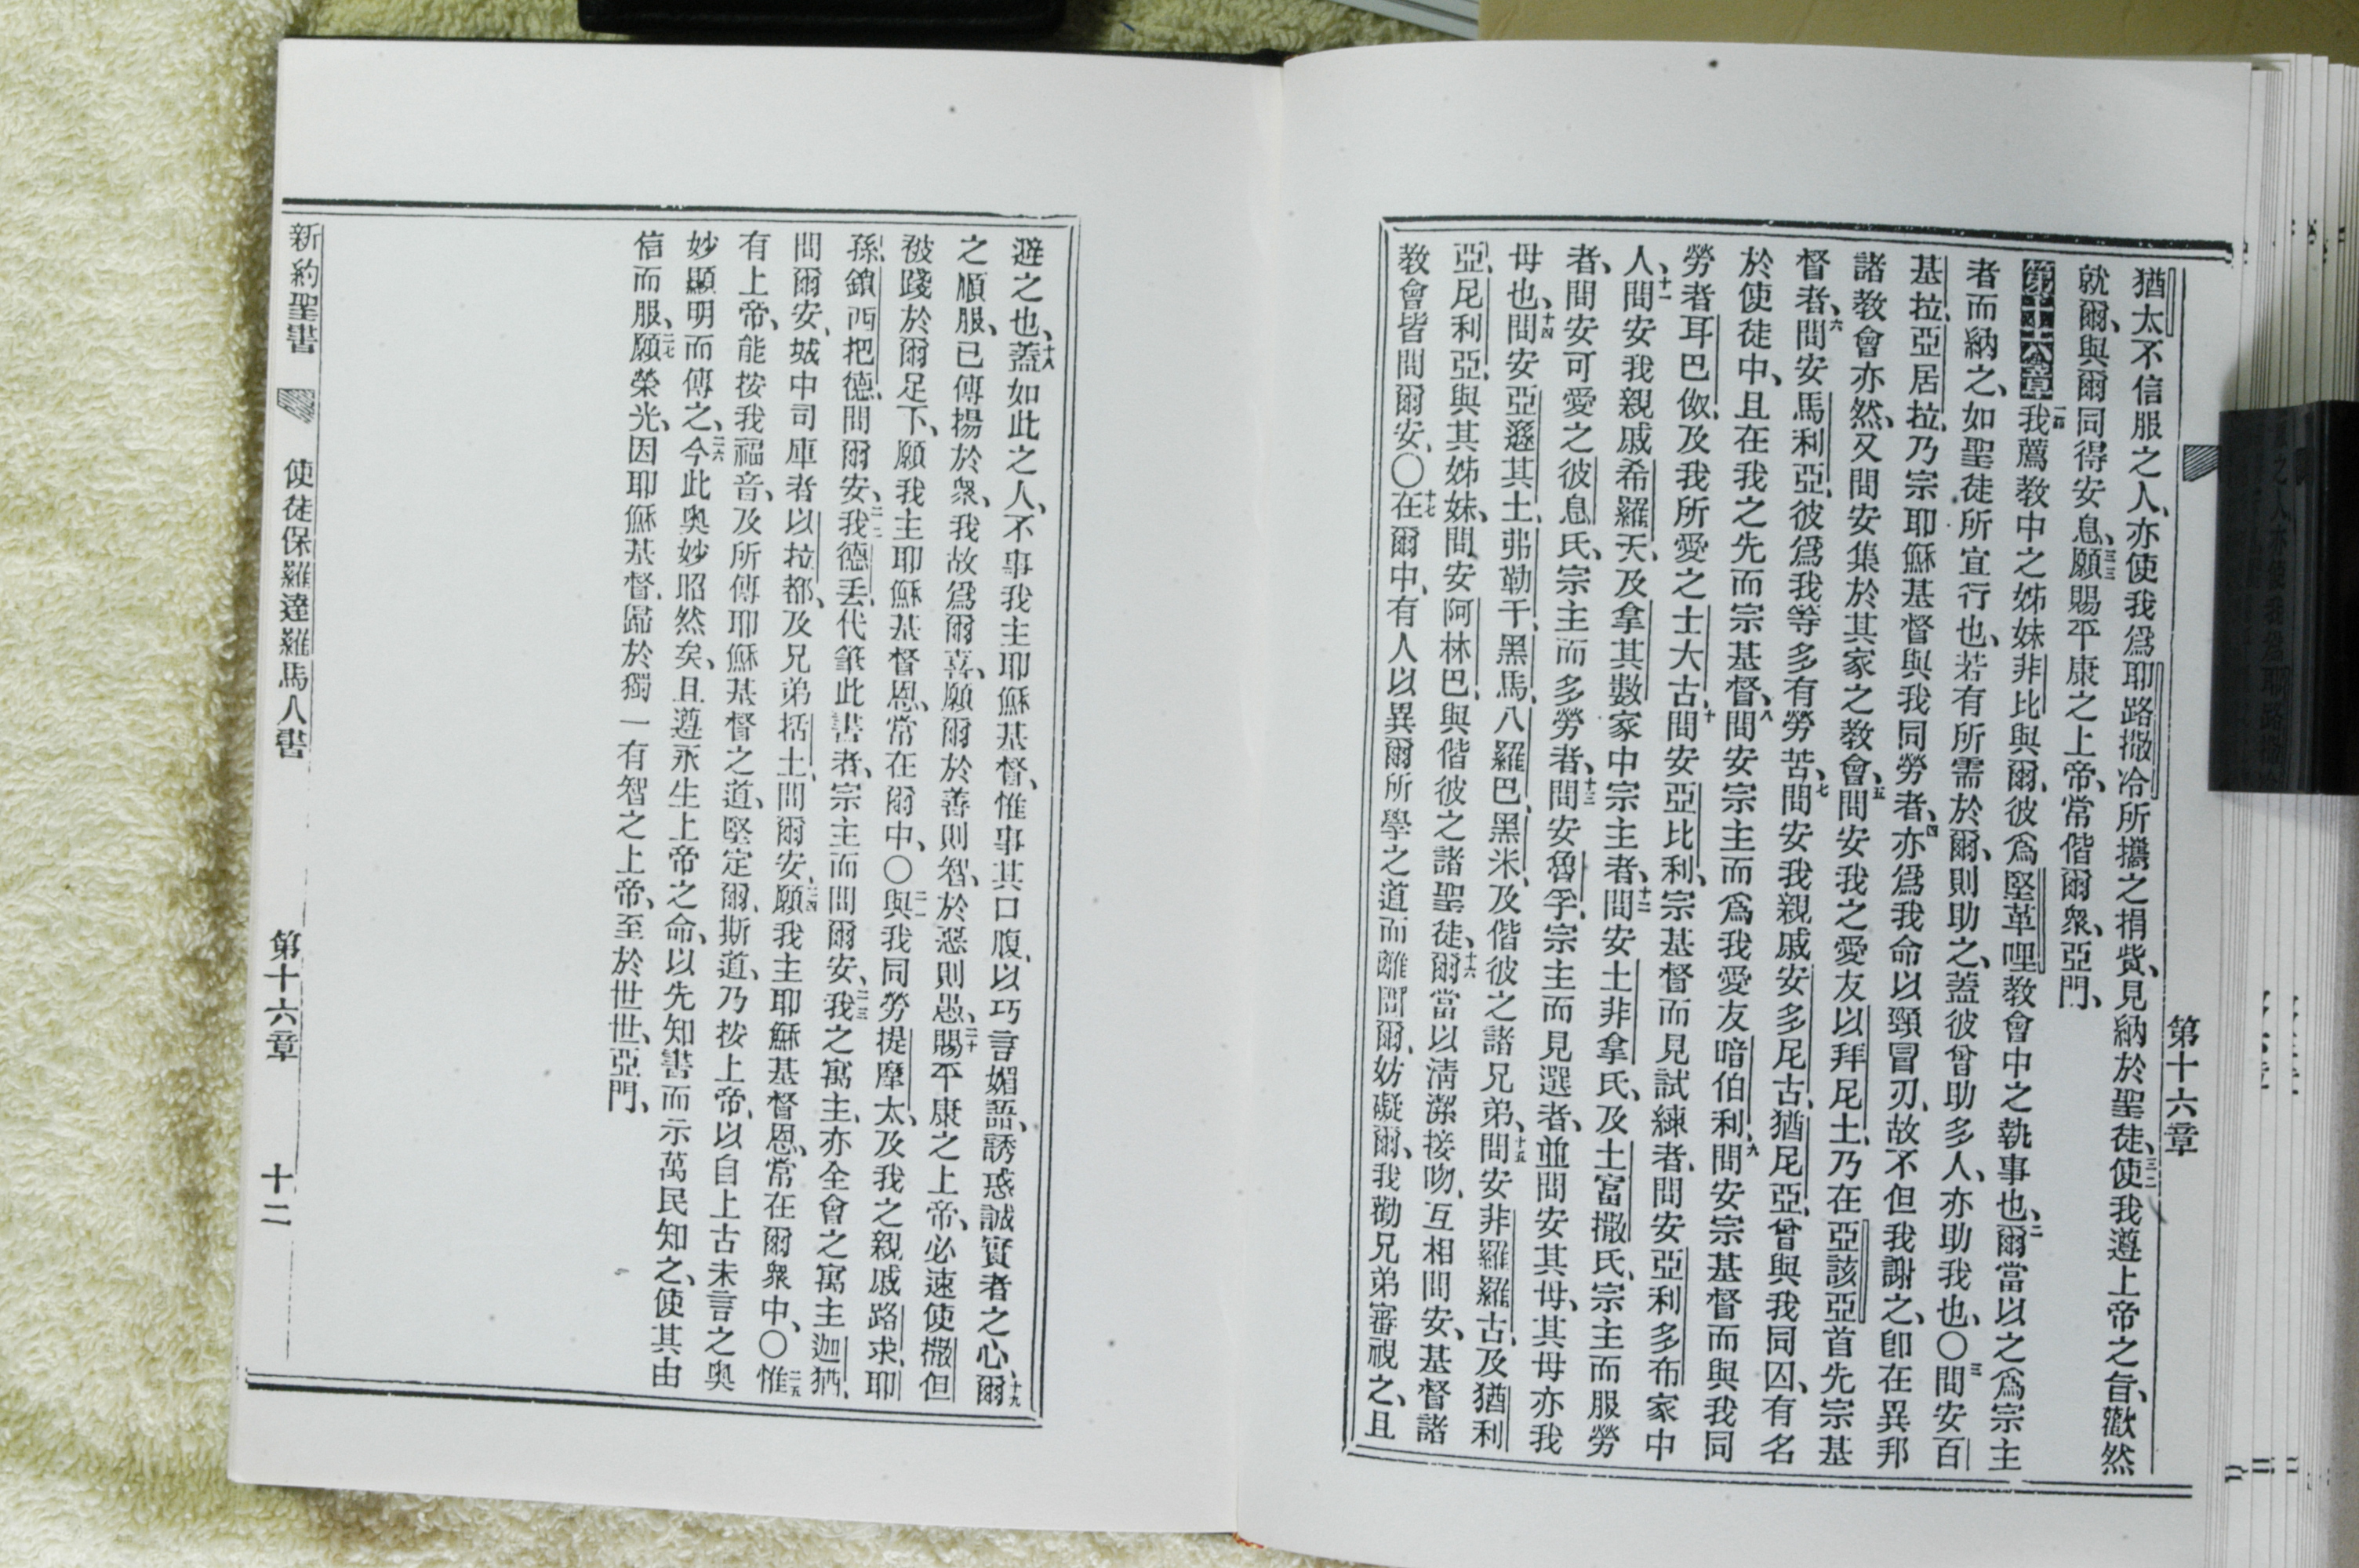 第十六章
猶太不信服之人、亦使我爲耶路撒冷所攜之捐貲、見納於聖徒、三二使我遵上帝之旨、歡然
就爾、與爾同得安息、三三願賜平康之上帝、常偕爾衆、亞門、
第十六章一我薦敎中之姊妹非比與爾、彼爲堅革哩敎會中之執事也、二爾當以之爲宗主
者而納之、如聖徒所宜行也、若有所需於爾、則助之、蓋彼曾助多人、亦助我也、〇三問安百
基拉、亞居拉、乃宗耶穌基督與我同勞者、四亦爲我命以頸冒刃、故不但我謝之、卽在異邦
諸敎會亦然、又問安集於其家之敎會、五問安我之愛友以拜尼土、乃在亞該亞首先宗基
督者、六問安馬利亞、彼爲我等多有勞苦、七問安我親戚安多尼古、猶尼亞、曾與我同囚、有名
於使徒中、且在我之先而宗基督、八問安宗主而爲我愛友暗伯利、九問安宗基督而與我同
勞者耳巴伮、及我所愛之士大古、十問安亞比利、宗基督而見試練者、問安亞利多布家中
人、十一問安我親戚希羅天、及拿其數家中宗主者、十二問安土非拿氏、及土富撒氏、宗主而服勞
者、問安可愛之彼息氏、宗主而多勞者、十三問安魯孚、宗主而見選者、並問安其母、其母亦我
母也、十四問安亞遜其土、弗勒干、黑馬、八羅巴、黑米、及偕彼之諸兄弟、十五問安非羅羅古、及猶利
亞、尼利亞、與其姊妹、問安阿林巴、與偕彼之諸聖徒、十六爾當以淸潔接吻、互相問安、基督諸
敎會皆問爾安、〇十七在爾中、有人以異爾所學之道而離間爾、妨礙爾、我勸兄弟審視之、且
避之也、十八蓋如此之人、不事我主耶穌基督、惟事其口腹、以巧言媚語、誘惑誠實者之心、十九爾
之順服、已傳揚於衆、我故爲爾喜、願爾於善則智、於惡則愚、二十賜平康之上帝、必速使撒但
被踐於爾足下、願我主耶穌基督恩、常在爾中、〇二一與我同勞提摩太、及我之親戚路求、耶
孫、鎖西把德、問爾安、二二我德丟、代筆此書者、宗主而問爾安、二三我之寓主、亦全會之寓主迦猶、
問爾安、城中司庫者以拉都、及兄弟括土、問爾安、二四願我主耶穌基督恩、常在爾衆中、〇二五惟
有上帝、能按我福音、及所傳耶穌基督之道、堅定爾、斯道、乃按上帝、以自上古未言之奧
妙顯明而傳之、二六今此奧妙昭然矣、且遵永生上帝之命、以先知書而示萬民知之、使其由
信而服、二七願榮光、因耶穌基督、歸於獨一有智之上帝、至於世世、亞門、
新約聖書 使徒保羅達羅馬人書 第十六章 十二